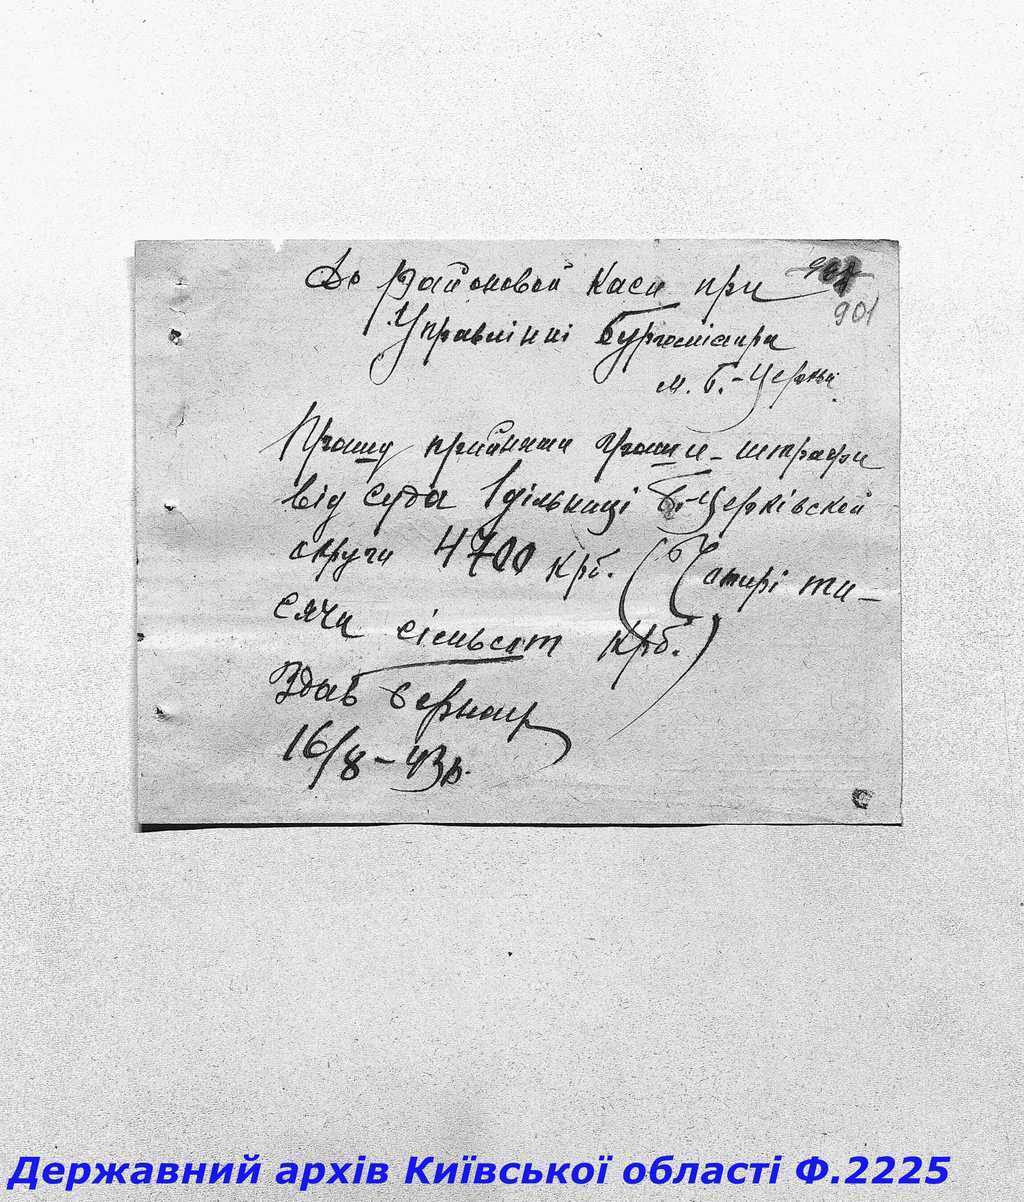 До районовой каси при
901
Управлінні Бургомістра
м. Б.-Церкви
Прошу прийняти гроши - штрафи
від суда 1 дільниці Б.-Церківской
округи 4700 крб. (Чотирі ти-
сячи сімьсот крб.)
Здав
16/8-43р.
Державний архів Київської області Ф.2225